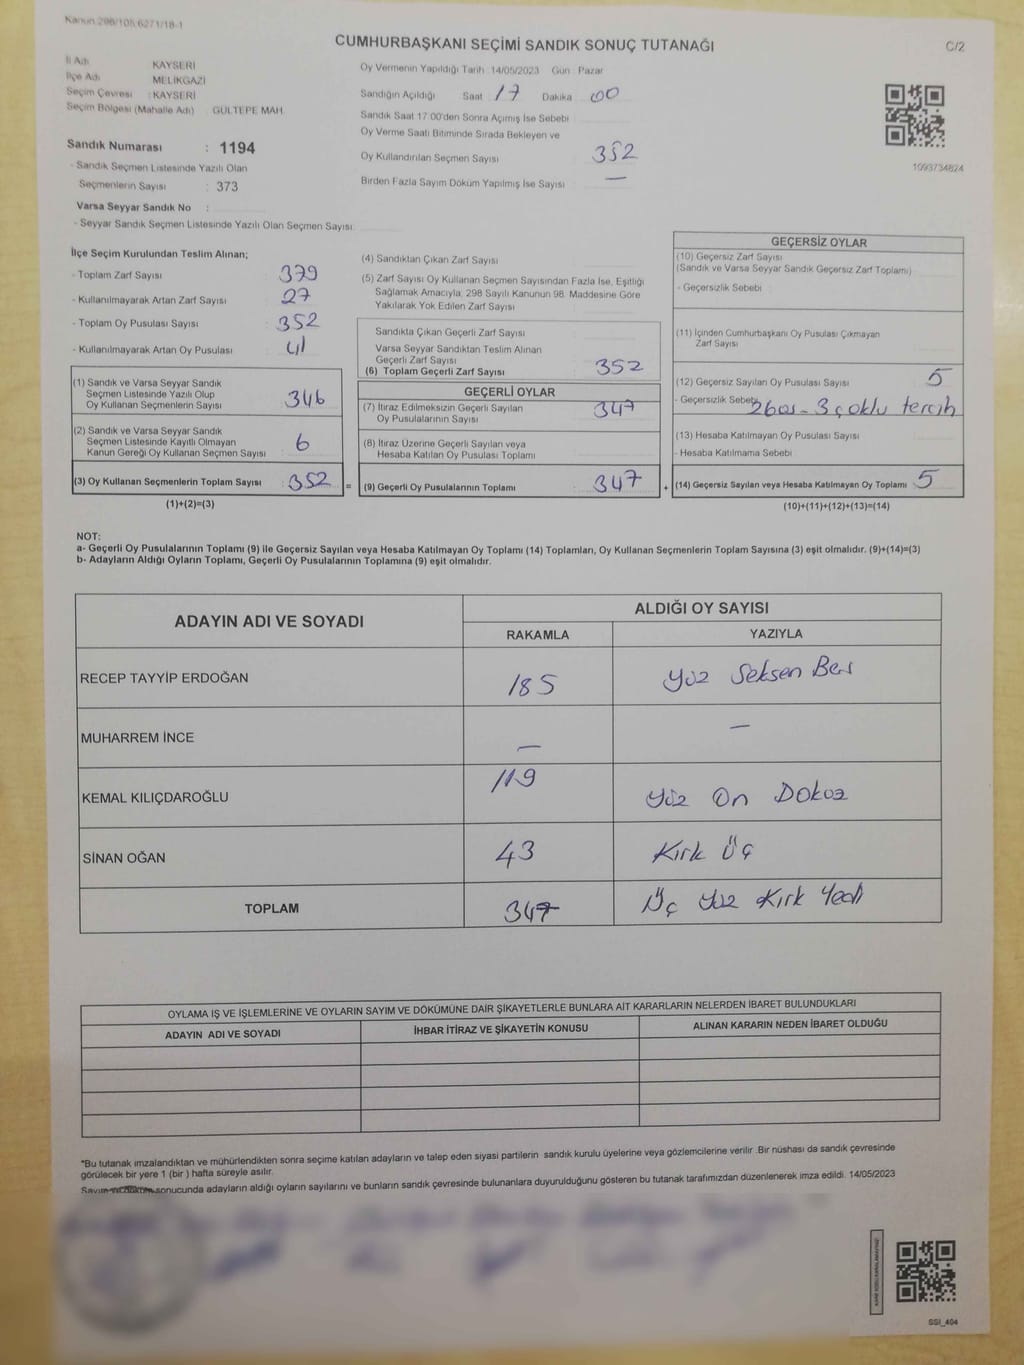 Kanun 298/105.6271/18-1
CUMHURBAŞKANI SEÇİMİ SANDIK SONUÇ TUTANAĞI
C/2
İl Adı KAYSERİ
İlçe Adı MELİKGAZİ
Seçim Çevresi : KAYSERİ
Seçim Bölgesi (Mahalle Adı) : GÜLTEPE MAH.
Sandık Numarası : 1194
- Sandık Seçmen Listesinde Yazılı Olan
Seçmenlerin Sayısı : 373
Varsa Seyyar Sandık No :
- Seyyar Sandık Seçmen Listesinde Yazılı Olan Seçmen Sayısı:
Oy Vermenin Yapıldığı Tarih : 14/05/2023 Gün : Pazar
Sandığın Açıldığı Saat 17 Dakika 00
Sandık Saat 17:00'den Sonra Açmış İse Sebebi
Oy Verme Saati Bitiminde Sırada Bekleyen ve
Oy Kullandırılan Seçmen Sayısı 352
Birden Fazla Sayım Döküm Yapılmış İse Sayısı —
1093734624
İlçe Seçim Kurulundan Teslim Alınan;
- Toplam Zarf Sayısı : 379
- Kullanılmayarak Artan Zarf Sayısı : 27
- Toplam Oy Pusulası Sayısı : 352
- Kullanılmayarak Artan Oy Pusulası : 41
(1) Sandık ve Varsa Seyyar Sandık
Seçmen Listesinde Yazılı Olup
Oy Kullanan Seçmenlerin Sayısı : 346
(2) Sandık ve Varsa Seyyar Sandık
Seçmen Listesinde Kayıtlı Olmayan
Kanun Gereği Oy Kullanan Seçmen Sayısı : 6
(3) Oy Kullanan Seçmenlerin Toplam Sayısı : 352
(1)+(2)=(3)
=
(4) Sandıktan Çıkan Zarf Sayısı
(5) Zarf Sayısı Oy Kullanan Seçmen Sayısından Fazla İse, Eşitliği
Sağlamak Amacıyla, 298 Sayılı Kanunun 98. Maddesine Göre
Yakılarak Yok Edilen Zarf Sayısı
Sandıkta Çıkan Geçerli Zarf Sayısı
Varsa Seyyar Sandıktan Teslim Alınan
Geçerli Zarf Sayısı
(6) Toplam Geçerli Zarf Sayısı 352
GEÇERLİ OYLAR
(7) İtiraz Edilmeksizin Geçerli Sayılan
Oy Pusulalarının Sayısı 347
(8) İtiraz Üzerine Geçerli Sayılan veya
Hesaba Katılan Oy Pusulası Toplamı
(9) Geçerli Oy Pusulalarının Toplamı 347
+
GEÇERSİZ OYLAR
(10) Geçersiz Zarf Sayısı
(Sandık ve Varsa Seyyar Sandık Geçersiz Zarf Toplamı)
- Geçersizlik Sebebi
(11) İçinden Cumhurbaşkanı Oy Pusulası Çıkmayan
Zarf Sayısı
(12) Geçersiz Sayılan Oy Pusulası Sayısı 5
- Geçersizlik Sebebi 3 çoklu tercih
(13) Hesaba Katılmayan Oy Pusulası Sayısı
- Hesaba Katılmama Sebebi
(14) Geçersiz Sayılan veya Hesaba Katılmayan Oy Toplamı 5
(10)+(11)+(12)+(13)=(14)
NOT:
a- Geçerli Oy Pusulalarının Toplamı (9) ile Geçersiz Sayılan veya Hesaba Katılmayan Oy Toplamı (14) Toplamları, Oy Kullanan Seçmenlerin Toplam Sayısına (3) eşit olmalıdır. (9)+(14)=(3)
b- Adayların Aldığı Oyların Toplamı, Geçerli Oy Pusulalarının Toplamına (9) eşit olmalıdır.
ADAYIN ADI VE SOYADI
ALDIĞI OY SAYISI
RAKAMLA YAZIYLA
RECEP TAYYİP ERDOĞAN 185 Yüz Seksen Beş
MUHARREM İNCE — —
KEMAL KILIÇDAROĞLU 119 Yüz On Dokuz
SİNAN OĞAN 43 Kırk Üç
TOPLAM 347 Üç Yüz Kırk Yedi
OYLAMA İŞ VE İŞLEMLERİNE VE OYLARIN SAYIM VE DÖKÜMÜNE DAİR ŞİKAYETLERLE BUNLARA AİT KARARLARIN NELERDEN İBARET BULUNDUKLARI
ADAYIN ADI VE SOYADI İHBAR İTİRAZ VE ŞİKAYETİN KONUSU ALINAN KARARIN NEDEN İBARET OLDUĞU
*Bu tutanak imzalandıktan ve mühürlendikten sonra seçime katılan adayların ve talep eden siyasi partilerin sandık kurulu üyelerine veya gözlemcilerine verilir .Bir nüshası da sandık çevresinde
görülecek bir yere 1 (bir ) hafta süreyle asılır.
Sayım ve döküm sonucunda adayların aldığı oyların sayılarını ve bunların sandık çevresinde bulunanlara duyurulduğunu gösteren bu tutanak tarafımızdan düzenlenerek imza edildi. 14/05/2023
SSİ_404